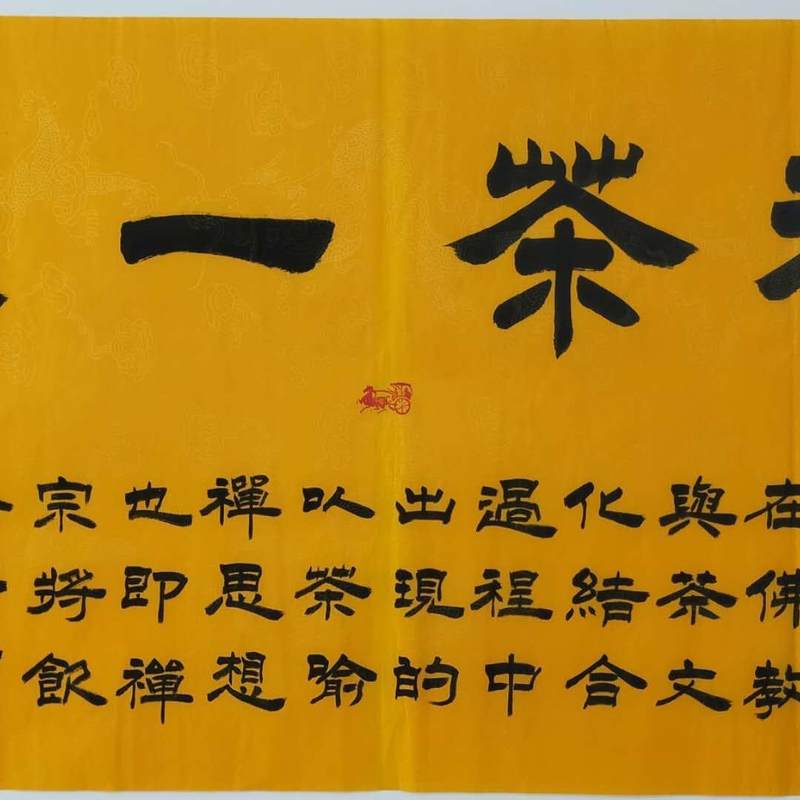 茶一
在佛教
與茶文
化結合
過程中
出現的
以茶喻
禪思想
也即禪
宗將飲